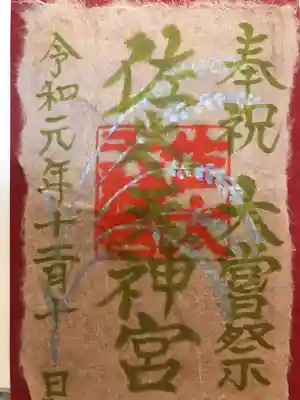 奉祝 大嘗祭
佐太天神宮
令和元年十一月十 日